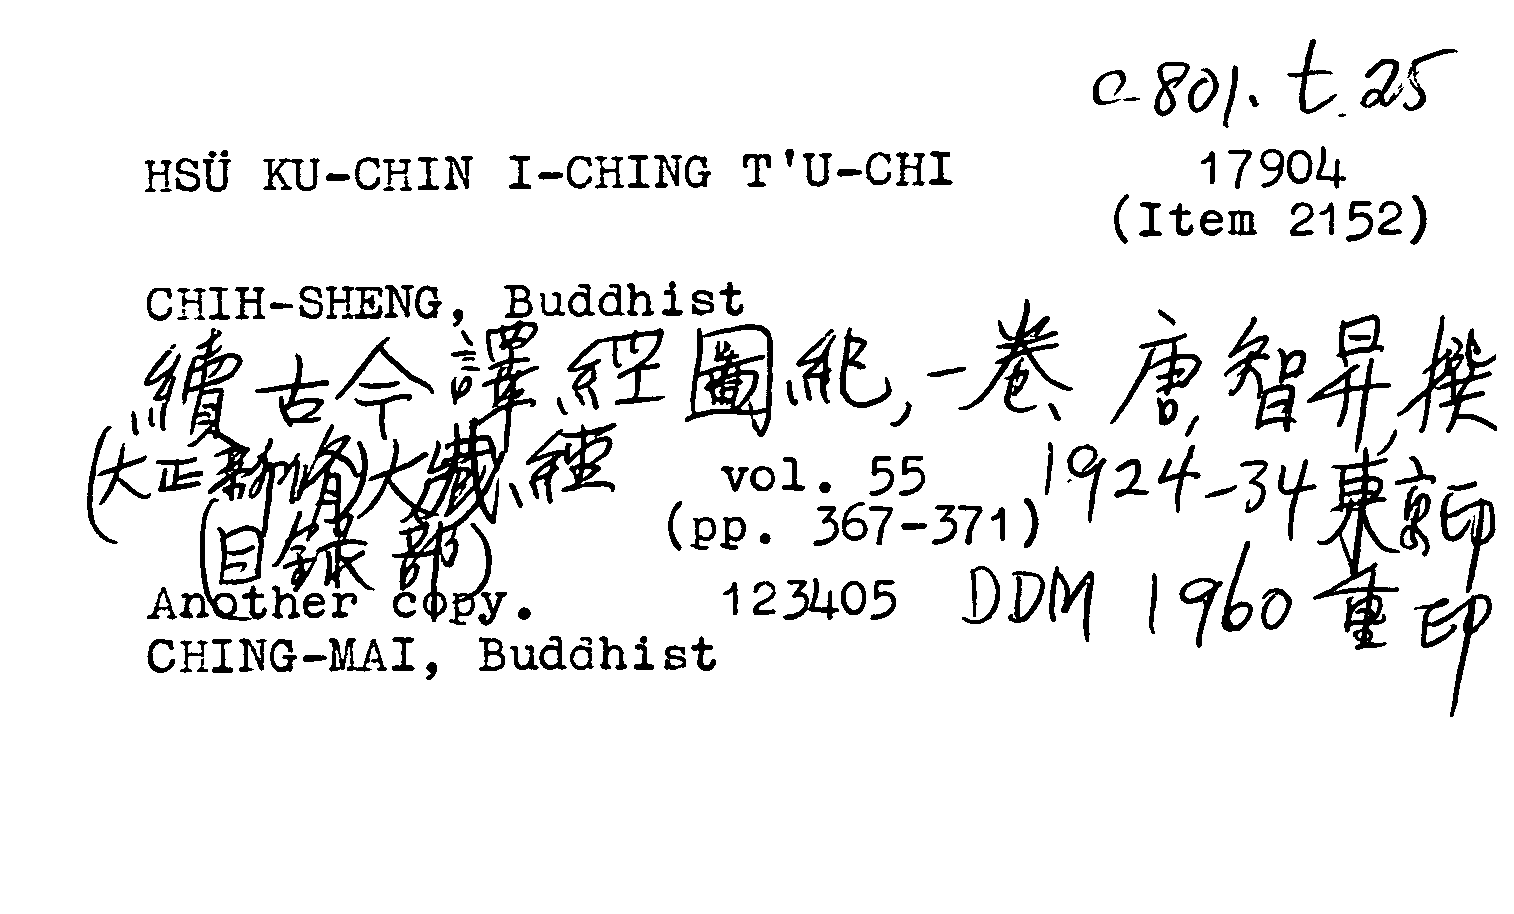 c 801. t. 25
HSÜ KU-CHIN I-CHING T'U-CHI 17904
(Item 2152)
CHIH-SHENG, Buddhist
續古今譯經圖紀, 一卷、唐, 智昇, 撰
(大正新脩)大藏經 vol. 55 1924-34 東京印
(目錄部) (pp. 367-371)
Another copy. 123405 DDM 1960 重印
CHING-MAI, Buddhist